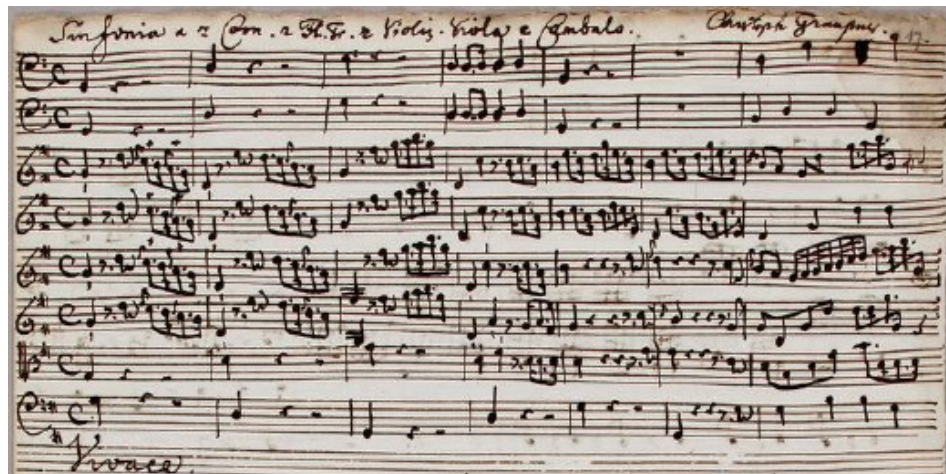 Sinfonia a 2 Corn. 2 Fl. Tr. 2 Violin. Viola e Cembalo. Christoph Graupner. 17.
Vivace.